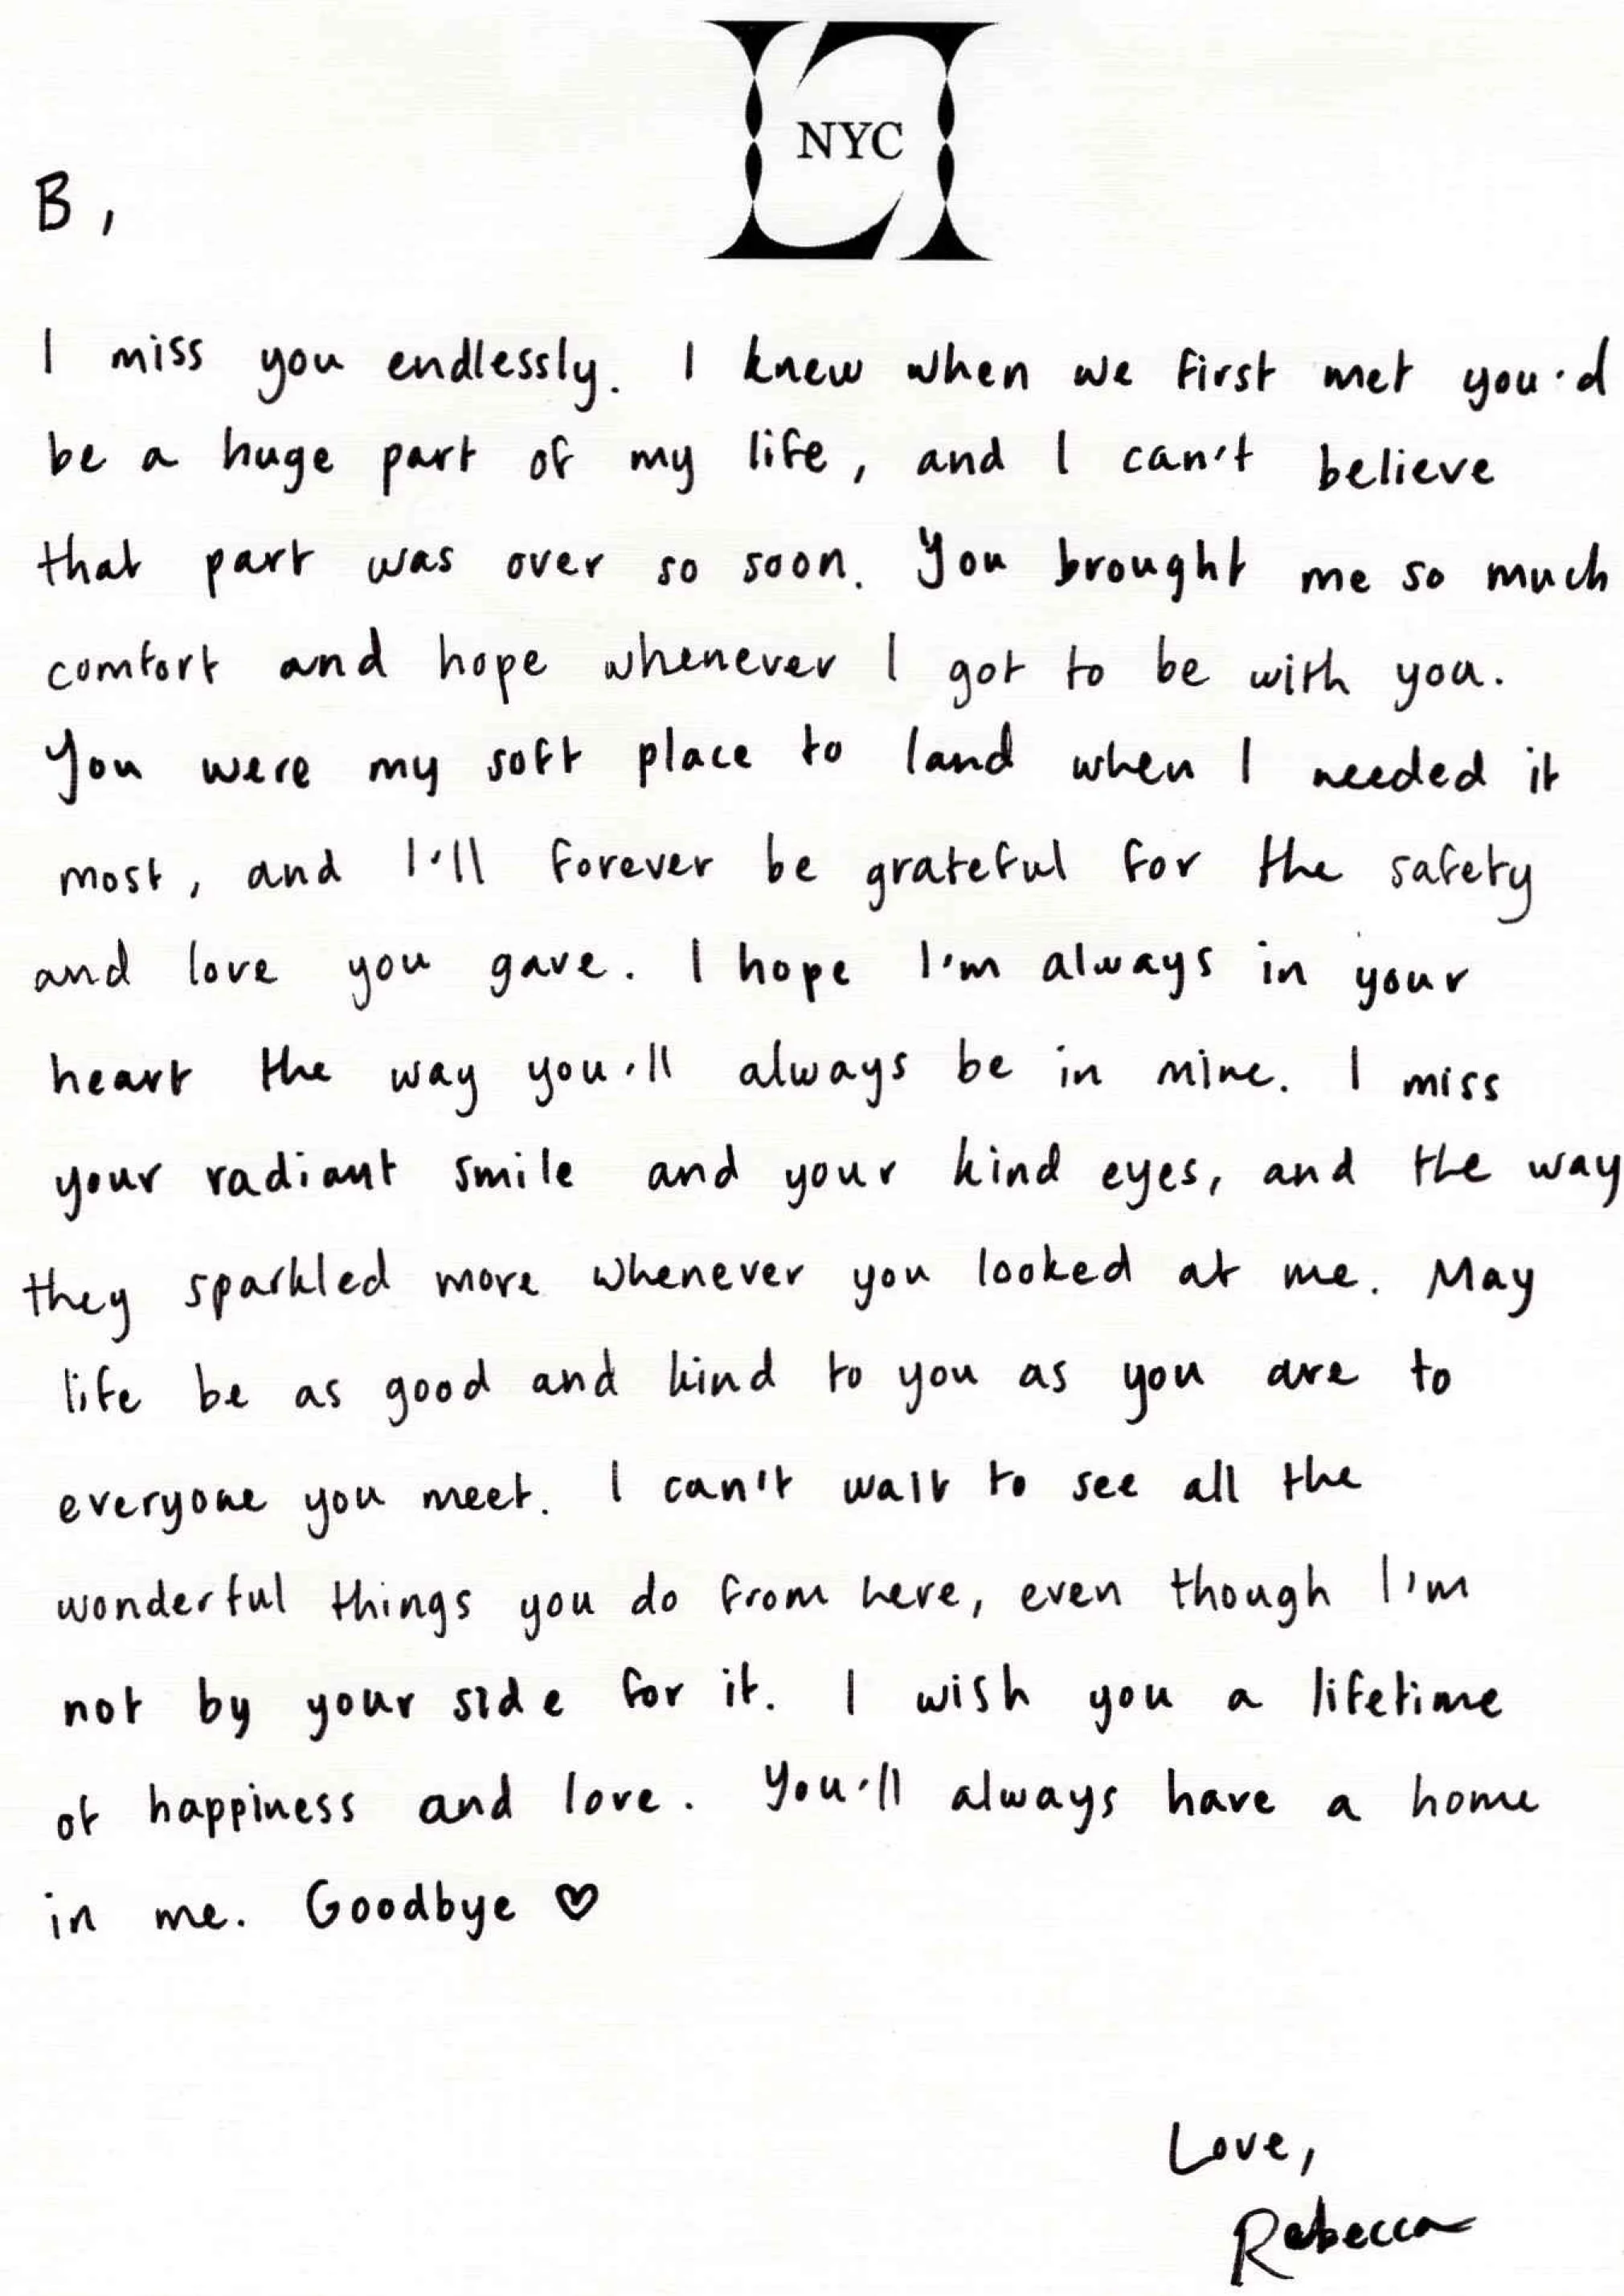 NYC
B,
I miss you endlessly. I knew when we first met you'd
be a huge part of my life, and I can't believe
that part was over so soon. You brought me so much
comfort and hope whenever I got to be with you.
You were my soft place to land when I needed it
most, and I'll forever be grateful for the safety
and love you gave. I hope I'm always in your
heart the way you'll always be in mine. I miss
your radiant smile and your kind eyes, and the way
they sparkled more whenever you looked at me. May
life be as good and kind to you as you are to
everyone you meet. I can't wait to see all the
wonderful things you do from here, even though I'm
not by your side for it. I wish you a lifetime
of happiness and love. You'll always have a home
in me. Goodbye ♡
Love,
Rebecca